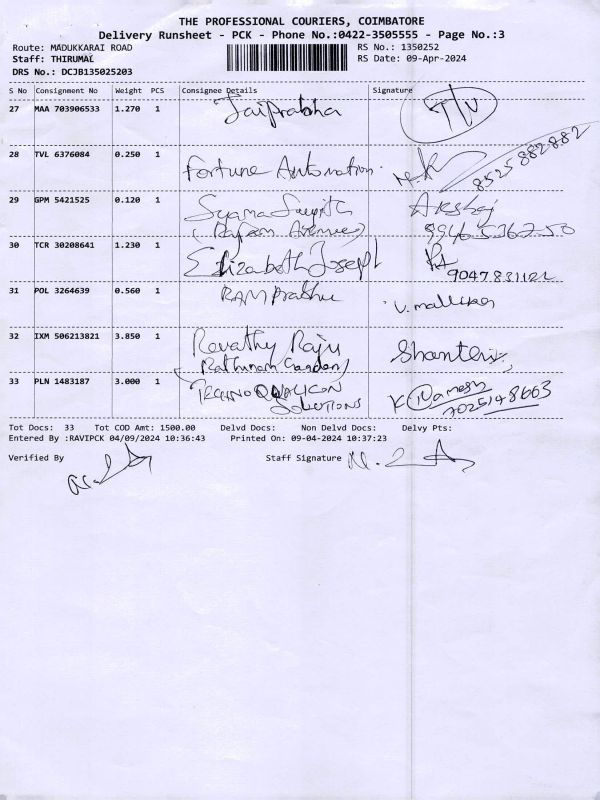 THE PROFESSIONAL COURIERS, COIMBATORE
Delivery Runsheet - PCK - Phone No.:0422-3505555 - Page No.:3
Route: MADUKKARAI ROAD RS No.: 1350252
Staff: THIRUMAL RS Date: 09-Apr-2024
DRS No.: DCJB135025203
S No Consignment No Weight PCS Consignee Details Signature
27 MAA 703906533 1.270 1 Jaiprabha
28 TVL 6376084 0.250 1 Fortune Automation 8525882882
29 GPM 5421525 0.120 1 Akshaj
30 TCR 30208641 1.230 1 Elizabeth Joseph
31 POL 3264639 0.560 1 RAM Prabhu
32 IXM 506213821 3.850 1 Revathy Raju
(Rathinam Garden)
33 PLN 1483187 3.000 1 TECHNO QUALICON Ramesh
SOLUTIONS
Tot Docs: 33 Tot COD Amt: 1500.00 Delvd Docs: Non Delvd Docs: Delvy Pts:
Entered By :RAVIPCK 04/09/2024 10:36:43 Printed On: 09-04-2024 10:37:23
Verified By Staff Signature